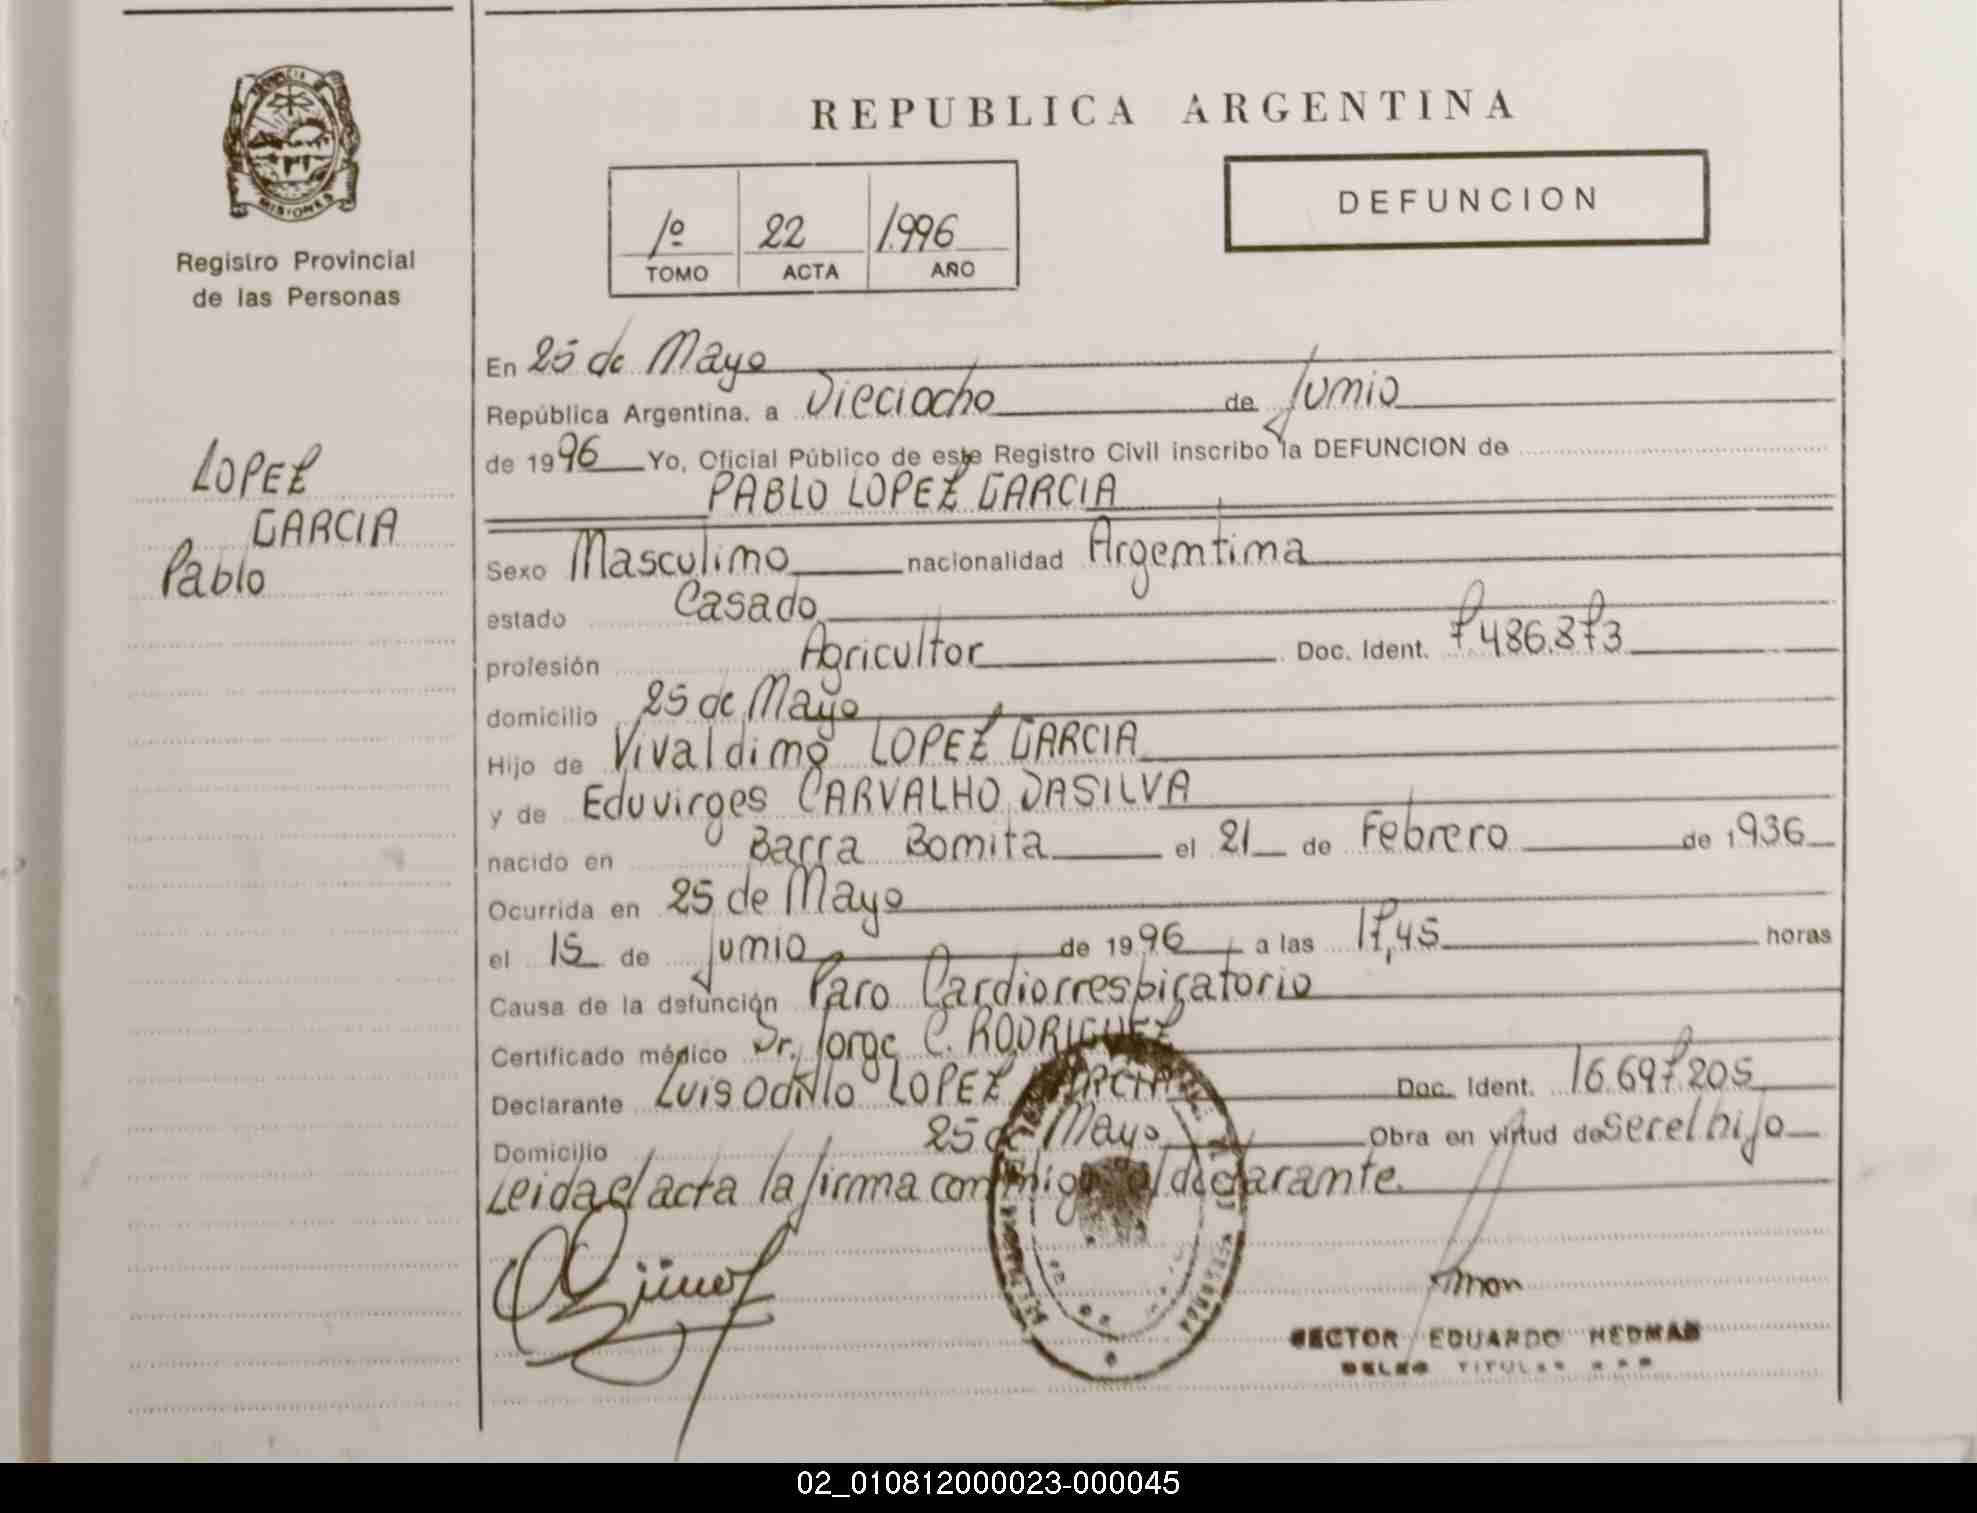 PROVINCIA DE
MISIONES
Registro Provincial
de las Personas
LOPEZ
GARCIA
Pablo
REPUBLICA ARGENTINA
1º 22 1.996
TOMO ACTA AÑO
DEFUNCION
En 25 de Mayo
República Argentina, a Dieciocho de Junio
de 1996 Yo, Oficial Público de este Registro Civil inscribo la DEFUNCION de
PABLO LOPEZ GARCIA
Sexo Masculino nacionalidad Argentina
estado Casado
profesión Agricultor Doc. Ident. 7.486.873
domicilio 25 de Mayo
Hijo de Vivaldino LOPEZ GARCIA
y de Eduvirges CARVALHO DASILVA
nacido en Barra Bonita el 21 de Febrero de 1936
Ocurrida en 25 de Mayo
el 15 de Junio de 1996 a las 17,45 horas
Causa de la defunción Paro Cardiorrespiratorio
Certificado médico Dr. Jorge C. RODRIGUEZ
Declarante Luis Odillo LOPEZ GARCIA Doc. Ident. 16.697.205
Domicilio 25 de Mayo Obra en virtud de ser el hijo
Leida el acta la firma conmigo el declarante.
HECTOR EDUARDO HEDMAN
DELEG TITULAR
02_010812000023-000045